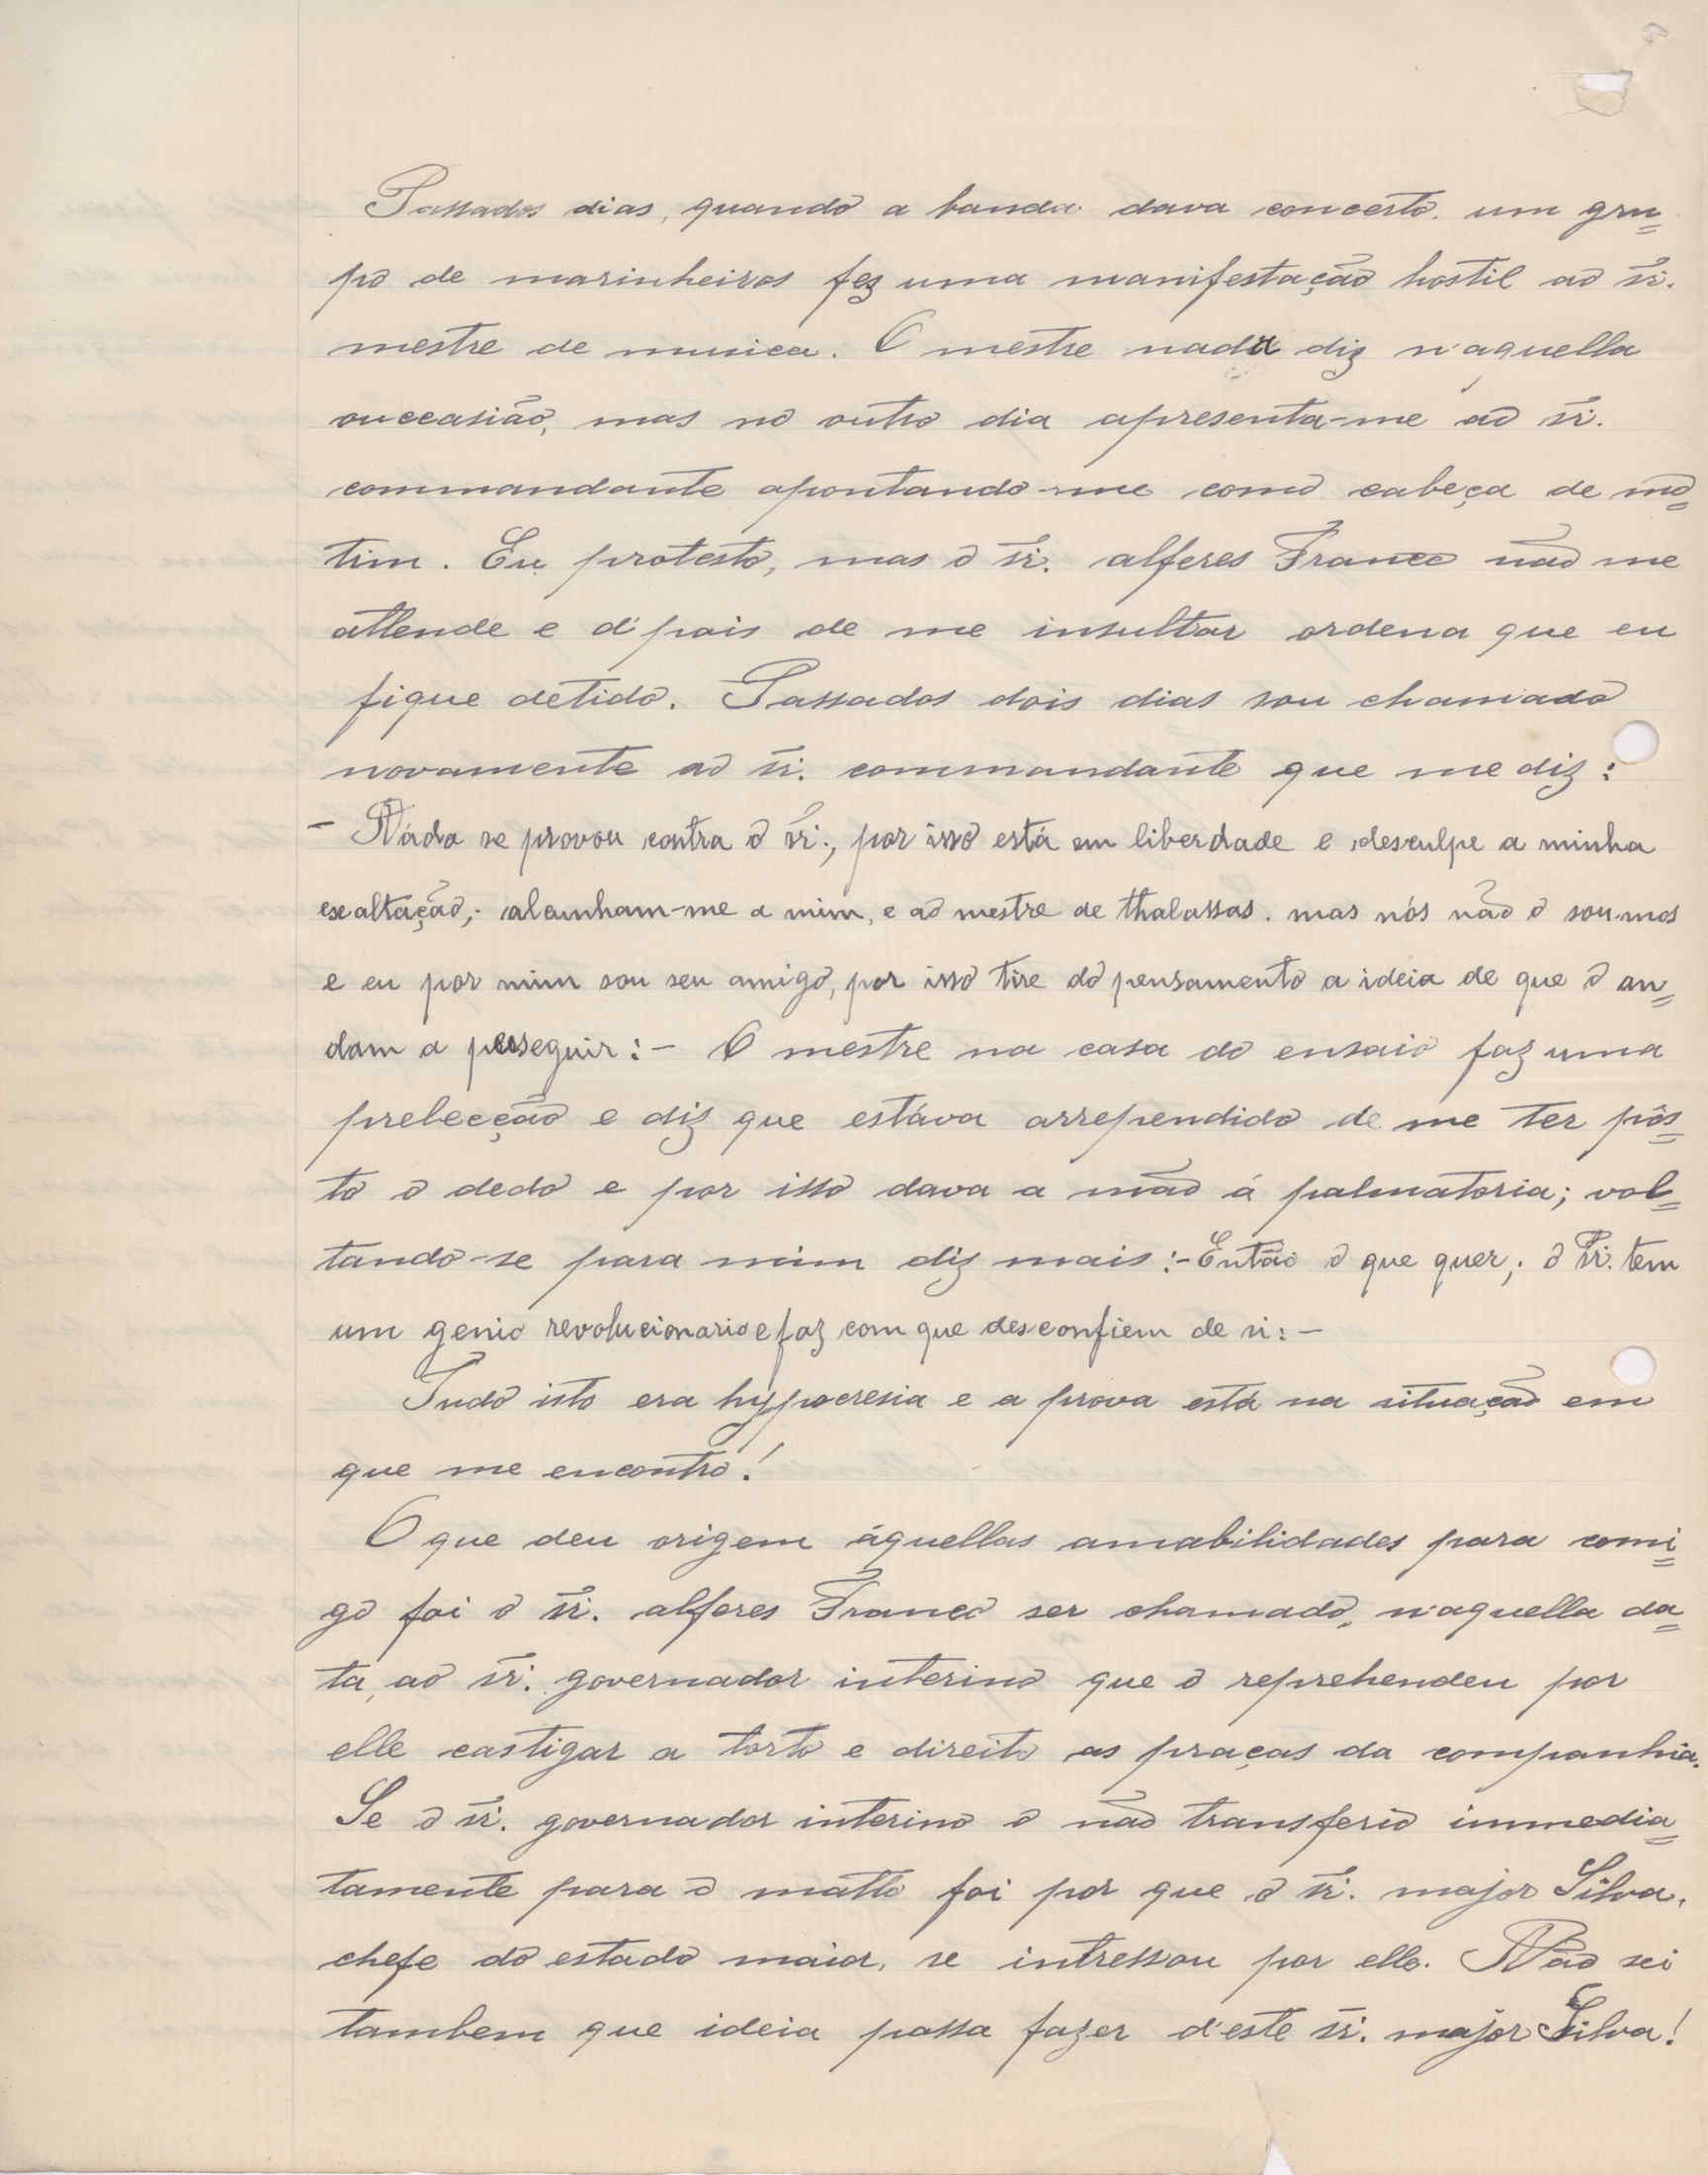 Passados dias, quando a banda dava concerto, um gru=
po de marinheiros fez uma manifestação hostil ao sr.
mestre de musica. O mestre nada diz n'aquella
ouccasião, mas no outro dia apresenta-me ao sr.
commandante apontando-me como cabeça de mo=
tim. Eu protesto, mas o sr. alferes Franco não me
attende e d'pois de me insultar ordena que eu
fique detido. Passados dois dias sou chamado
novamente ao sr. commandante que me diz:
- Náda se provou contra o sr., por isso está em liberdade e desculpe a minha
exaltação; alcunham-me a mim, e ao mestre de thalassas. mas nós não o sou-mos
e eu por mim sou seu amigo, por isso tire do pensamento a ideia de que o an=
dam a perseguir:- O mestre na casa do ensaio faz uma
prelecção e diz que estáva arrependido de me ter pôs=
to o dedo e por isso dava a mão á palmatoria; vol=
tando-se para mim diz mais:- Então o que quer; o Sr. tem
um genio revolucionario e faz com que desconfiem de si:-
Tudo isto era hyppocresia e a prova está na situação em
que me encontro!
O que deu origem áquellas amabilidades para comi=
go foi o sr. alferes Franco ser chamado, n'aquella da=
ta, ao sr. governador interino que o reprehendeu por
elle castigar a torto e direito as praças da companhia.
Se o sr. governador interino o não transferio immedia=
tamente para o matto foi por que o sr. major Silva,
chefe do estado maior, se intressou por elle. Não sei
tambem que ideia possa fazer d'este sr. major Silva!